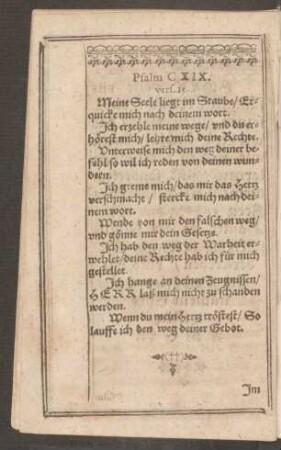 Psalm C XIX.
vers. 25
Meine Seele liegt im Staube/ Er-
quicke mich nach deinem wort.
Ich erzehle meine wege/ vnd du er-
hörest mich/ lehre mich deine Rechte.
Vnterweise mich den weg deiner be-
fähl so wil ich reden von deinen wun-
dern.
Ich greme mich/ das mir das Hertz
verschmacht/ stercke mich nach dei-
nem wort.
Wende von mir den falschen weg/
vnd gönne mir dein Gesetze.
Ich hab den weg der Warheit er-
wehlet/ deine Rechte hab ich für mich
gestellet.
Ich hange an deinen Zeugnissen/
HERR laß mich nicht zu schanden
werden.
Wenn du mein Hertz tröstest/ So
lauffe ich den weg deiner Gebot.
Im